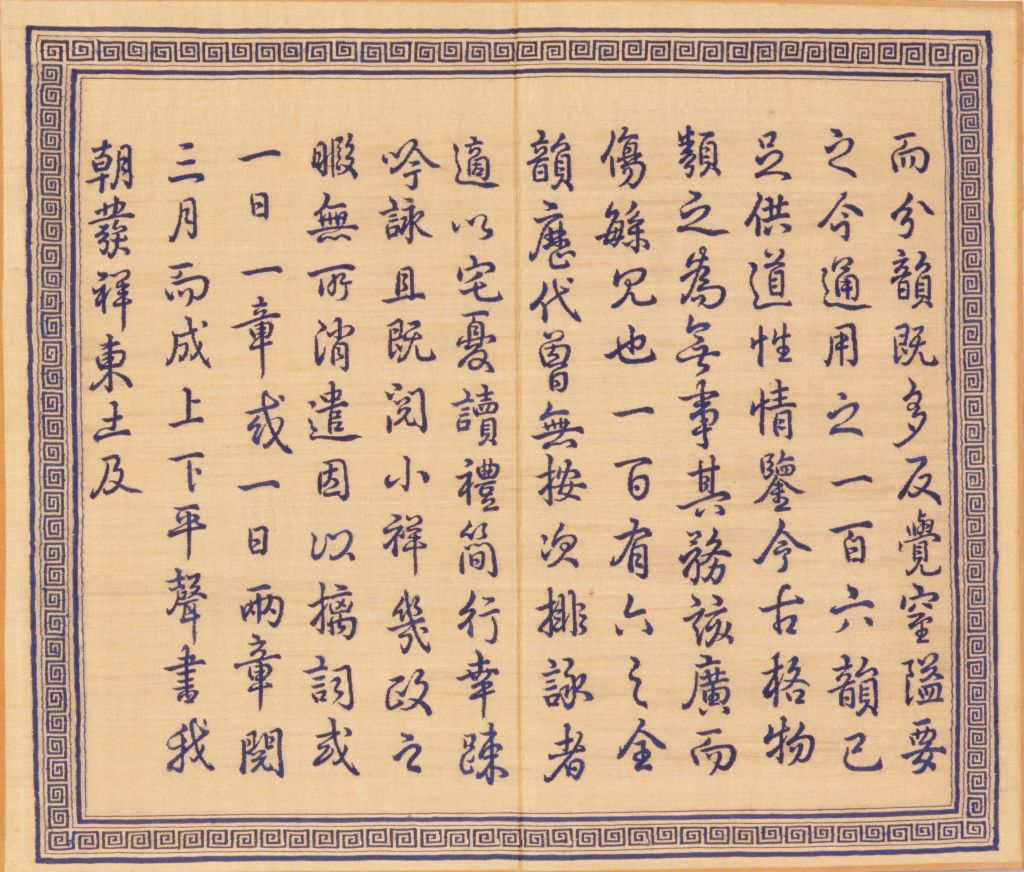 而分韻既多反覺窒隘要
之今通用之一百六韻已
足供道性情鑒今古格物
類之為無事其務該廣而
傷繁冗也一百有六之全
韻歷代曾無按次排詠者
適以宅憂讀禮簡行幸疎
吟詠且既閱小祥幾政之
暇無所消遣因以摛詞或
一日一章或一日兩章閱
三月而成上下平聲書我
朝發祥東土及